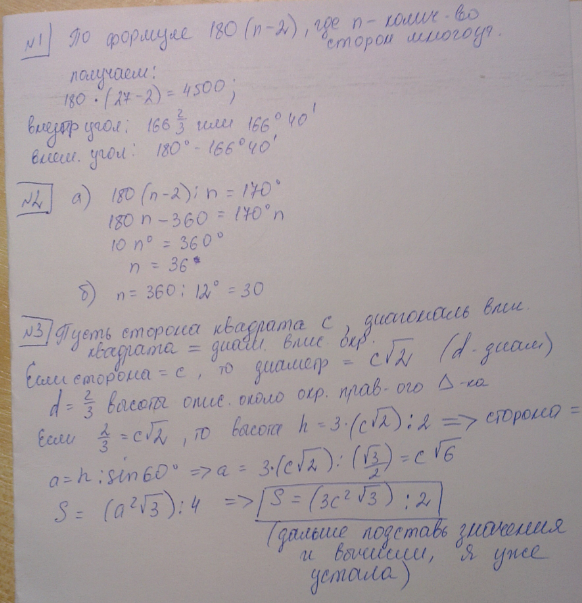 №1 По формуле 180(n-2), где n - колич-во
сторон многоуг.
получаем:
180·(27-2) = 4500;
внутр угол: 166 2/3 или 166°40'
внеш. угол: 180° - 166°40'
№2 а) 180(n-2):n = 170°
180n - 360 = 170°n
10n° = 360°
n = 36
б) n = 360:12° = 30
№3 Пусть сторона квадрата c, диагональ впис.
квадрата = диам. впис окр.
Если сторона = c, то диаметр = c√2 (d - диам)
d = 2/3 высоты опис. около окр. прав-ого Δ-ка
Если 2/3 = c√2, то высота h = 3·(c√2):2 => сторона =
a = h:sin60° => a = 3·(c√2):(√3/2) = c√6
S = (a²√3):4 => S = (3c²√3):2
(дальше подставь значения
и вычисли, я уже
устала)